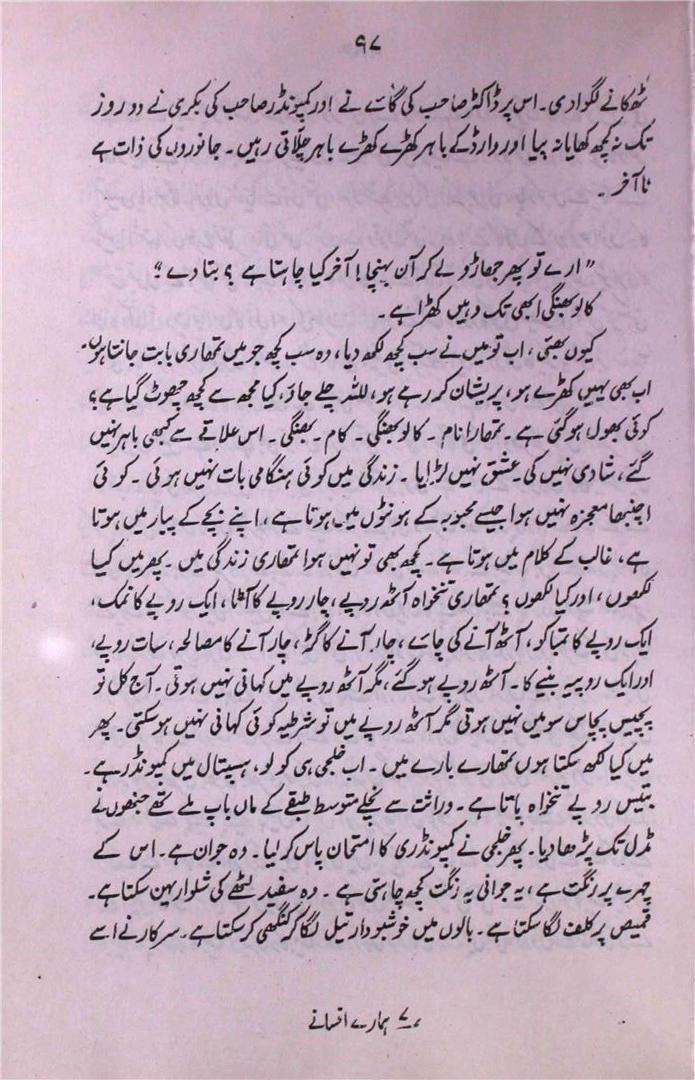 ۹۷
ٹھکانے لگوا دی۔ اس پر ڈاکٹر صاحب کی گائے نے اور کمپونڈر صاحب کی بکری نے دو روز
تک نہ کچھ کھایا نہ پیا اور وارڈ کے باہر کھڑے کھڑے باہر چلّاتی رہیں۔ جانوروں کی ذات ہے
نا آخر۔
"ارے تو پھر جھاڑو لے کر آن پہنچا! آخر کیا چاہتا ہے ؟ بتا دے"
کالو بھنگی ابھی تک وہیں کھڑا ہے۔
کیوں بھئی، اب تو میں نے سب کچھ لکھ دیا، وہ سب کچھ جو میں تمھاری بابت جانتا ہوں۔
اب بھی یہیں کھڑے ہو، پریشان کر رہے ہو، للہ چلے جاؤ، کیا مجھ سے کچھ چھوٹ گیا ہے؟
کوئی بھول ہو گئی ہے۔ تمھارا نام۔ کالو بھنگی۔ کام۔ بھنگی۔ اس علاقے سے کبھی باہر نہیں
گئے، شادی نہیں کی۔ عشق نہیں لڑایا۔ زندگی میں کوئی ہنگامی بات نہیں ہوئی۔ کوئی
اچنبھا معجزہ نہیں ہوا جیسے محبوبہ کے ہونٹوں میں ہوتا ہے، اپنے بچے کے پیار میں ہوتا
ہے، غالب کے کلام میں ہوتا ہے۔ کچھ بھی تو نہیں ہوا تمھاری زندگی میں۔ پھر میں کیا
لکھوں، اور کیا لکھوں؟ تمھاری تنخواہ آٹھ روپے، چار روپے کا آٹا، ایک روپے کا نمک،
ایک روپے کا تمباکو، آٹھ آنے کی چائے، چار آنے کا گڑ، چار آنے کا مصالحہ، سات روپے،
اور ایک روپیہ بنیے کا۔ آٹھ روپے ہو گئے، مگر آٹھ روپے میں کہانی نہیں ہوتی۔ آج کل تو
پچیس پچاس سو میں نہیں ہوتی مگر آٹھ روپے میں تو شرطیہ کوئی کہانی نہیں ہو سکتی۔ پھر
میں کیا لکھ سکتا ہوں تمھارے بارے میں۔ اب خلجی ہی کو لو، ہسپتال میں کمپونڈر ہے۔
بتیس روپے تنخواہ پاتا ہے۔ وراثت سے نچلے متوسط طبقے کے ماں باپ ملے تھے جنھوں نے
مڈل تک پڑھا دیا۔ پھر خلجی نے کمپونڈری کا امتحان پاس کر لیا۔ وہ جوان ہے۔ اس کے
چہرے پر رنگت ہے، یہ جوانی یہ رنگت کچھ چاہتی ہے۔ وہ سفید لٹھے کی شلوار پہن سکتا ہے۔
قمیص پر کلف لگا سکتا ہے۔ بالوں میں خوشبودار تیل لگا کر کنگھی کر سکتا ہے۔ سرکار نے اسے
۷ ہمارے افسانے